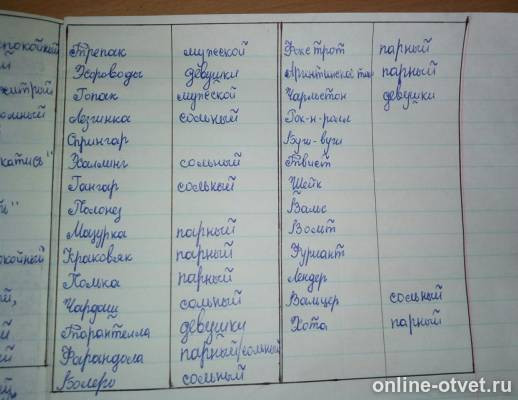 покойный
Трепак мужской Фокстрот парный
Хороводы девушки Аргинтинской парный
итрый
Гопак мужской Чарльстон девушки
Лезгинка сольный Рок-н-ролл
Спрингар Буги-вуги
катись"
Халлинг сольный Твист
Гангар сольный Шейк
Полонез Вальс
Мазурка парный Вольт
Краковяк парный Фуриант
Полька парный Лендер
Чардаш сольный Вальцер сольный
Тарантелла девушки Хота парный
Фарандола парный/сольный
Болеро сольный
online-otvet.ru